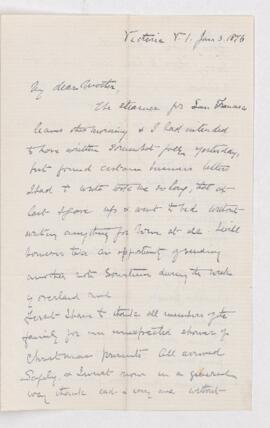 Victoria V.I. Jan 3. 1876
My dear Mother,
The steamer for San Francisco
leaves this morning & I had intended
to have written somewhat fully yesterday,
but found certain business letters
I had to write took me so long, that at
last I gave up & went to bed without
writing anything for home at all. I will
however take an opportunity of sending
another note sometime during the week
by overland mail
First I have to thank all members of the
family for an unexpected shower of
Christmas presents. All arrived
safely, & I must now in a general
way thank each & every one without